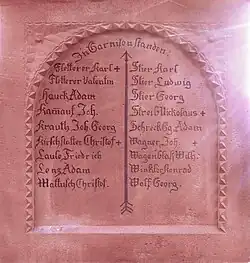 In Garnison standen:
Flotterer Karl +
Flotterer Valentin
Hauck Adam
Joh.
Krauth Joh. Georg
Kirschstatter Christof +
Laule Friedrich
Lenz Adam
Mattusch Christof.
Stier Karl
Stier Ludwig
Stier Georg
Streib Nickolaus +
Schreck Gg. Adam
Wagner, Joh. +
Wagenblass Wilh.
Winkler Konrad
Wolf Georg.